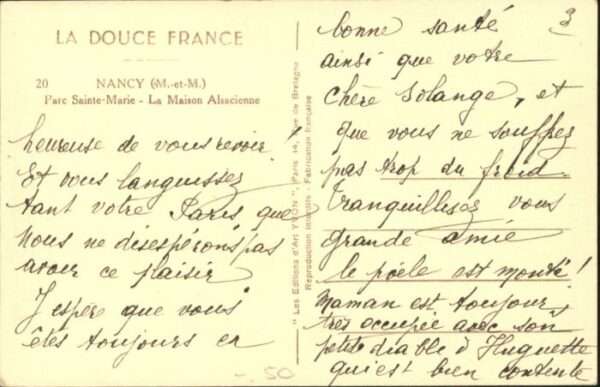 LA DOUCE FRANCE
20 NANCY (M.-et-M.)
Parc Sainte-Marie - La Maison Alsacienne
heureuse de vous revoir
Et vous languissez
tant votre Paris que
nous ne désespérons pas
avoir ce plaisir
J'espère que vous
êtes toujours en
" Les Editions d'Art YVON ", Paris 14, rue de Bretagne
Reproduction interdite - Fabrication française
3
bonne santé
ainsi que votre
chère Solange, et
que vous ne souffrez
pas trop du froid
Tranquillisez vous
grande amie
le poêle est monté !
Maman est toujours
très occupée avec son
petit diable d'Huguette
qui est bien contente
-.50